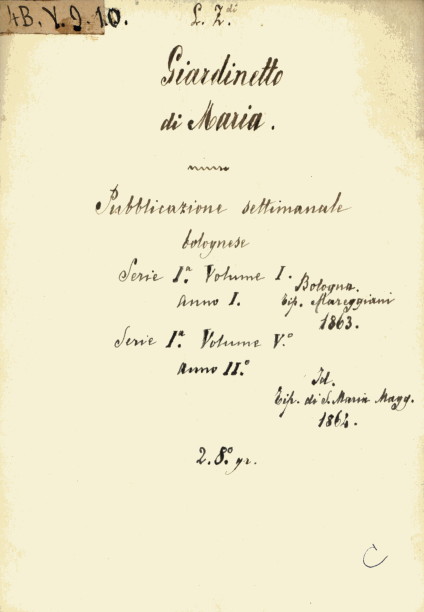 4B. V. 9. 10.
L. Z.di
Giardinetto
di Maria.
Pubblicazione settimanale
bolognese
Serie I.a Volume I.
Anno I.
Bologna.
Tip. Mareggiani
1863.
Serie I.a Volume V.o
Anno II.o
Id.
Tip. di S. Maria Magg.
1864.
2. 8.o gr.
C